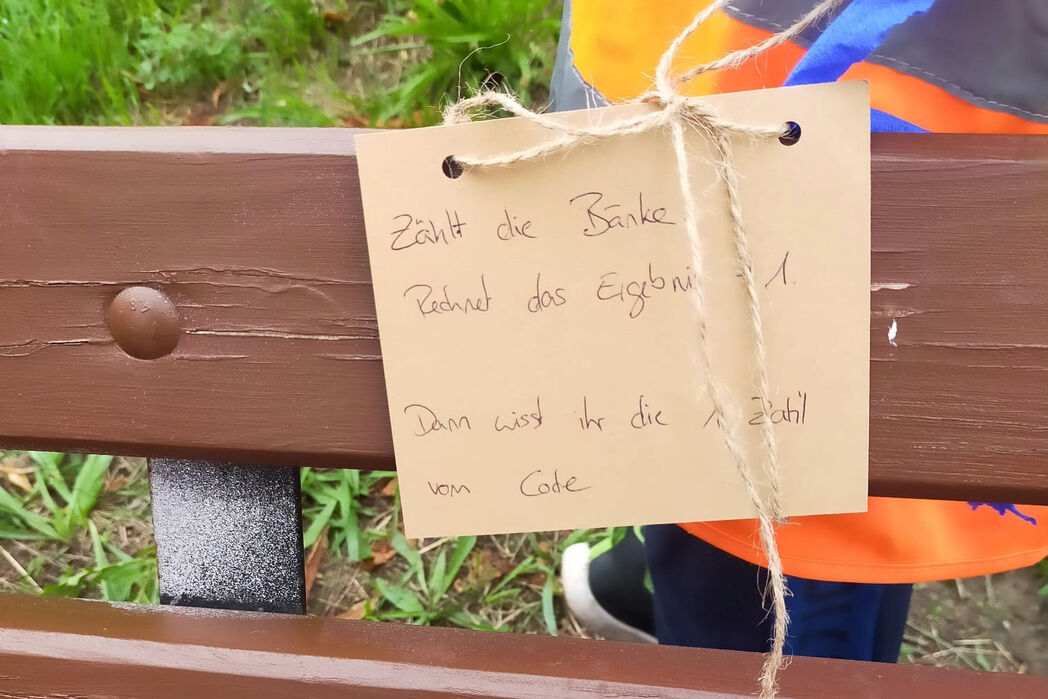 Zählt die Bänke
Rechnet das Ergebnis 1.
Dann wisst ihr die 1. Zahl
vom Code